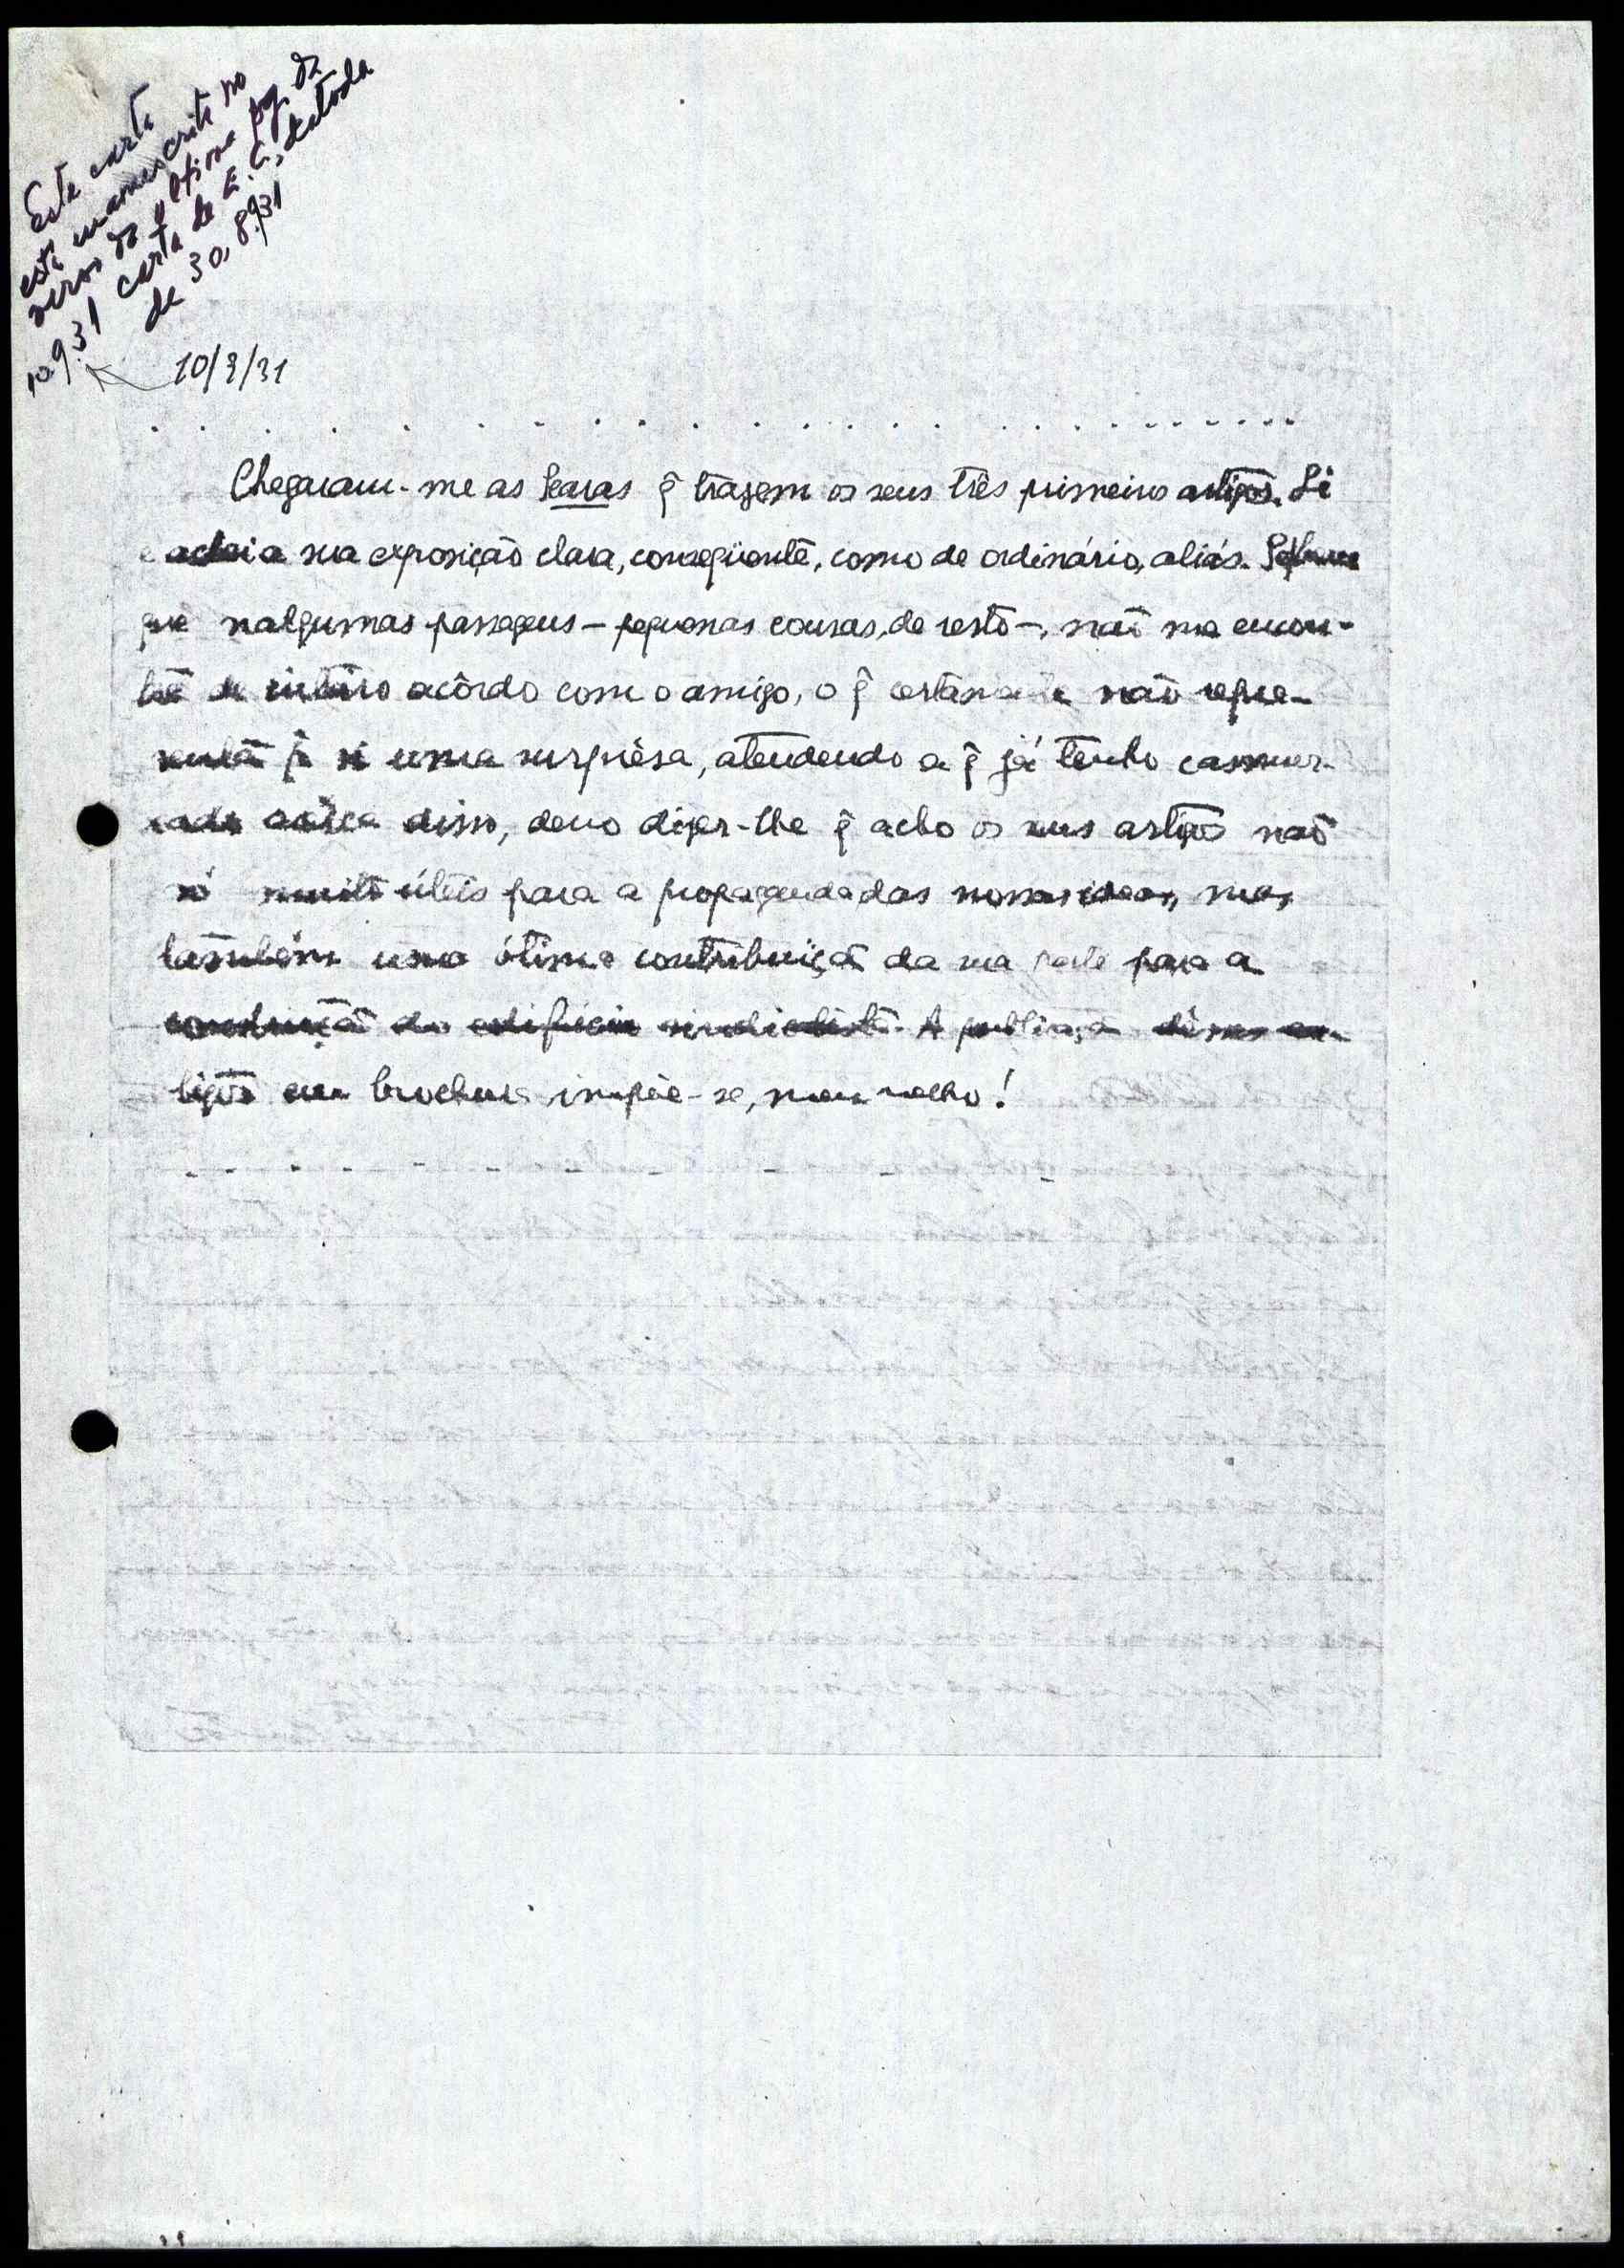 Esta carta
está manuscrita no
verso da última pág. da
carta de E. C., datada
de 30.8.931
10.9.31
10/9/31
. . . . . . . . . . . . . . . . . . . . . . . .
Chegaram-me as Searas q̃ trazem os seus três primeiros artigos. Li
e achei a sua exposição clara, conseqüente, como de ordinário, aliás.
que nalgumas passagens — pequenas cousas, de resto —, não me encon-
tre de inteiro acôrdo com o amigo, o q̃ certamente não repre-
senta p̃ si uma surprêsa, atendendo a q̃ já tenho casmur-
rado acêrca disso, devo dizer-lhe q̃ acho os seus artigos não
só muito úteis para a propaganda das nossas ideas, mas
também uma ótima contribuïção da sua parte para a
construção do edifício sindicalista. A publicação dêsses ar-
tigos em brochura impõe-se, meu velho!
- - - - - - - - - - - -